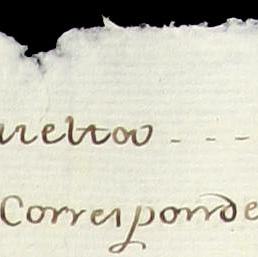 ueltov - - -
Corresponde